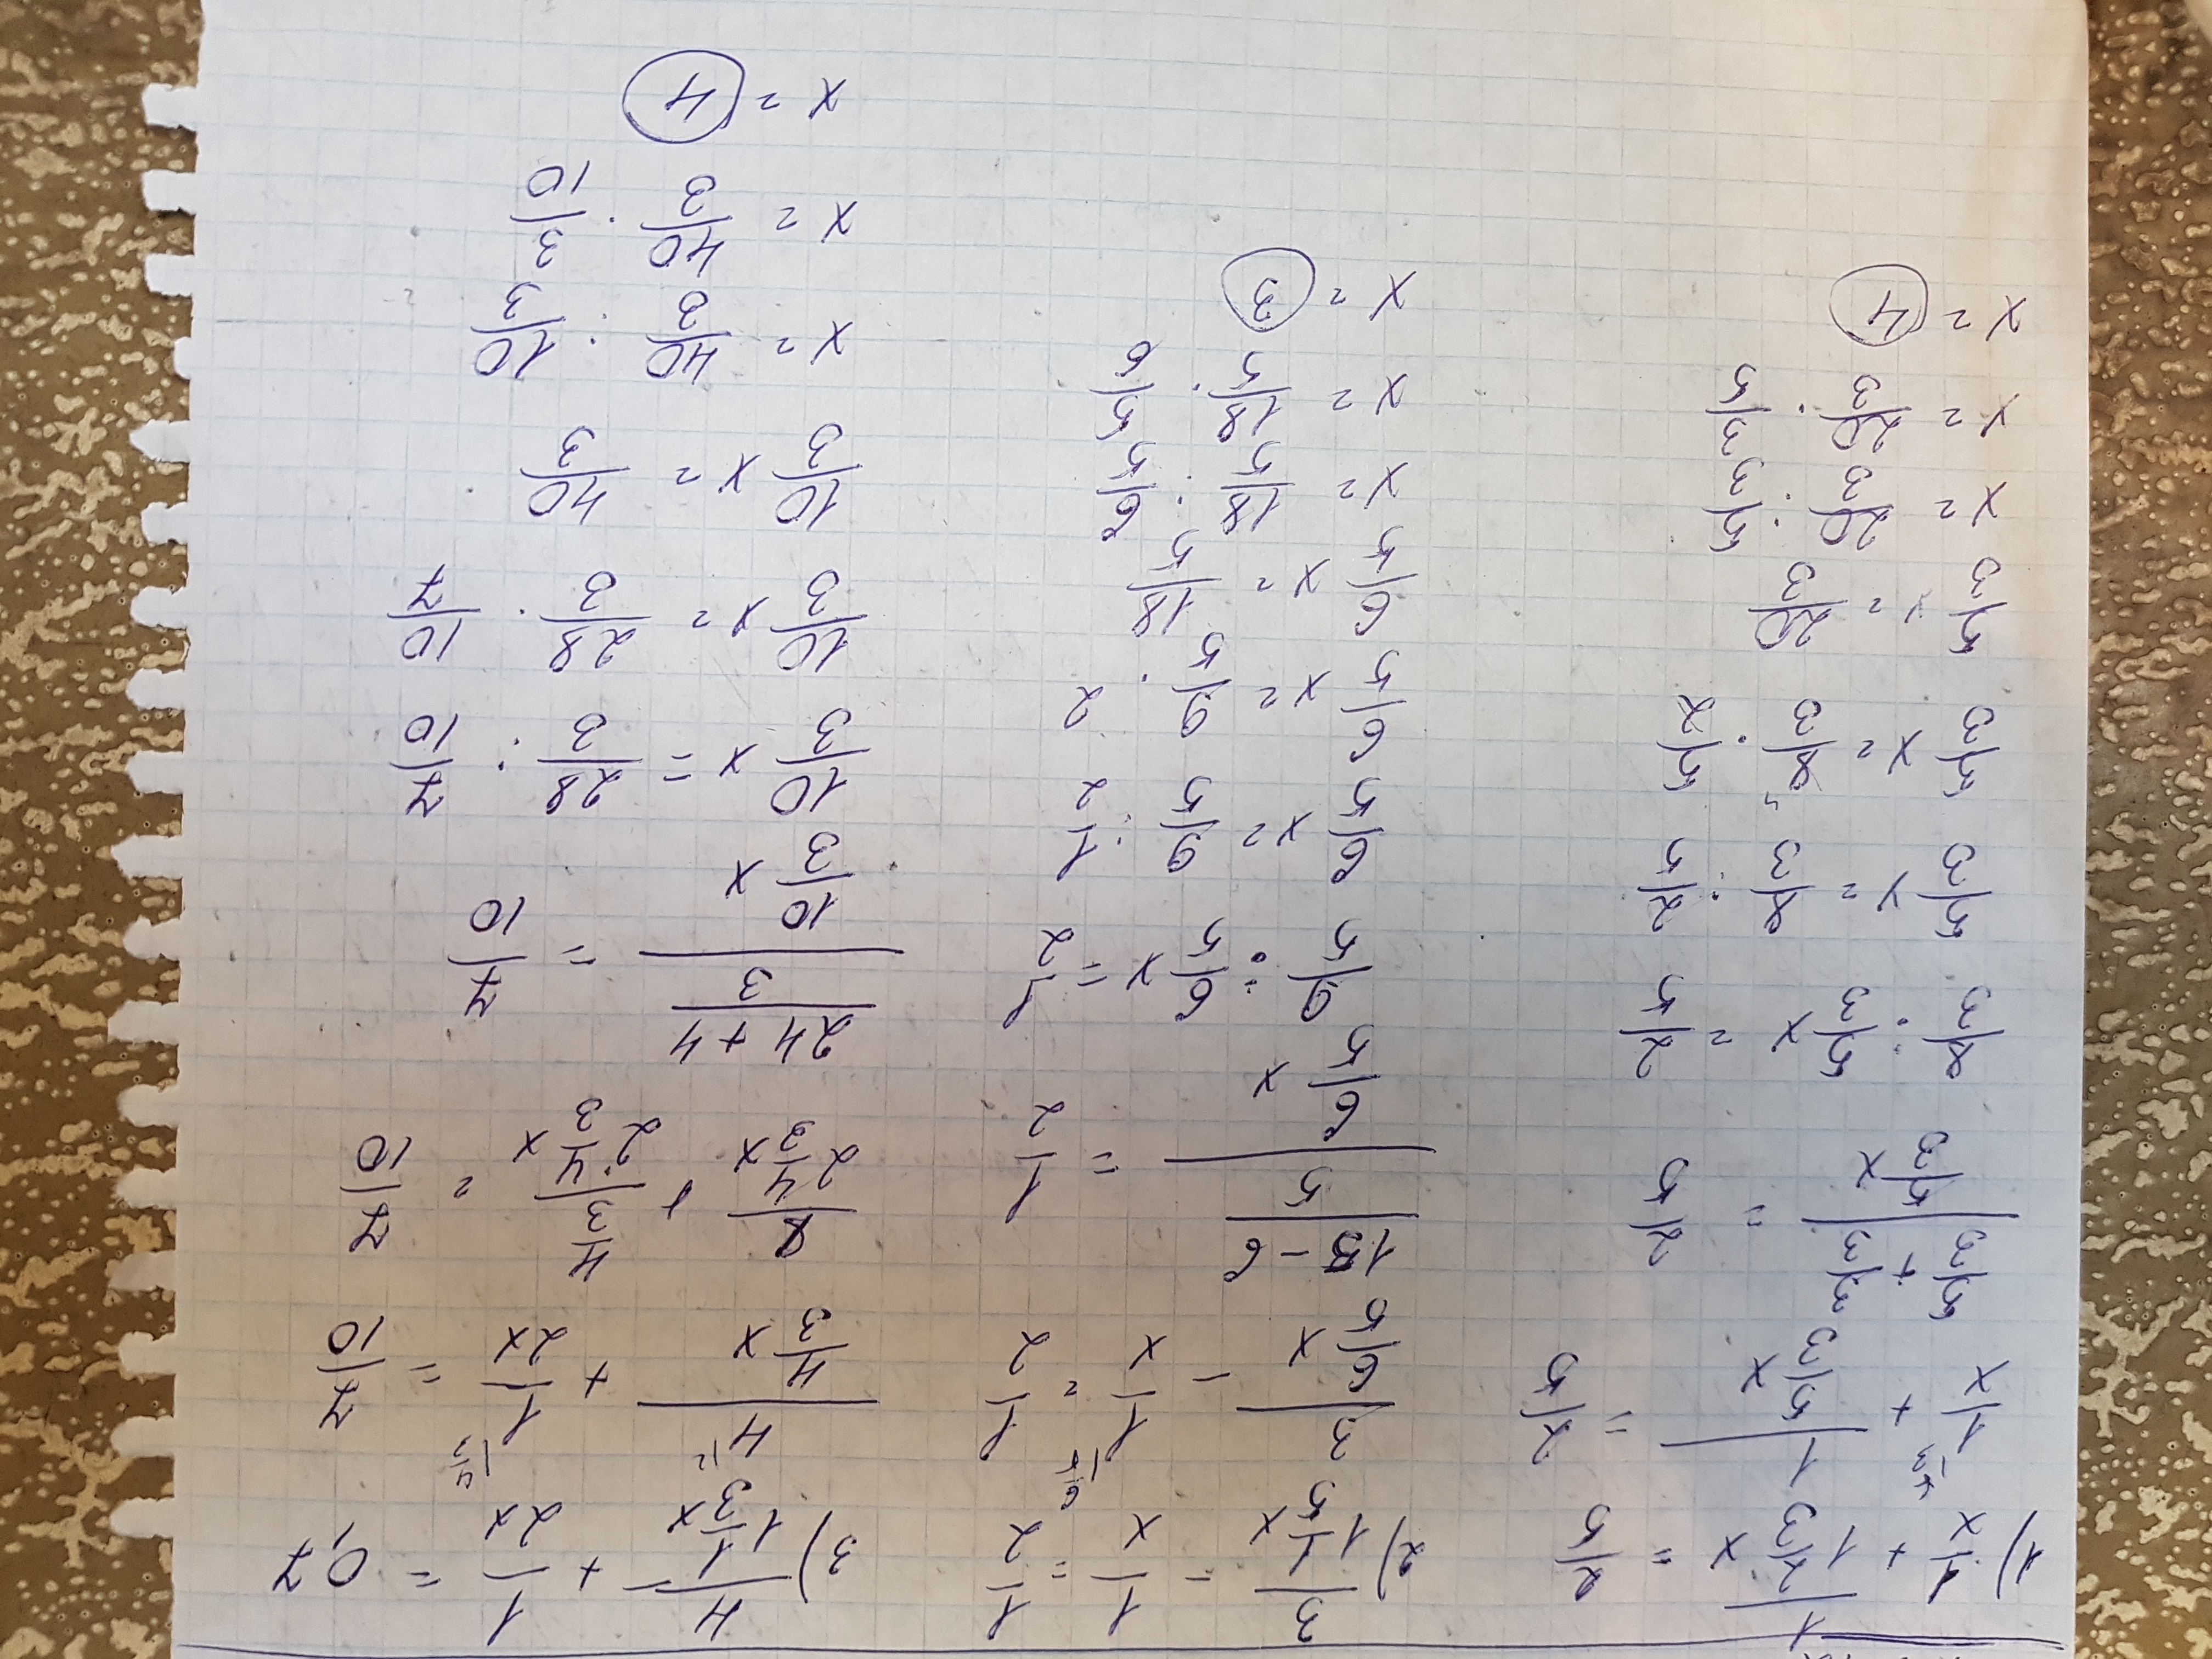 1) 1/x + 1/(1 2/3 x) = 2/5
1/x + 1/(5/3 x) = 2/5
(5/3 + 3/3)/(5/3 x) = 2/5
8/3 : 5/3 x = 2/5
5/3 x = 8/3 : 2/5
5/3 x = 8/3 · 5/2
5/3 x = 20/3
x = 20/3 : 5/3
x = 20/3 · 3/5
x = 4
2) 3/(1 1/5 x) - 1/x = 1/2
3/(6/5 x) - 1/x = 1/2
((15 - 6)/5)/(6/5 x) = 1/2
9/5 : 6/5 x = 1/2
6/5 x = 9/5 : 1/2
6/5 x = 9/5 · 2
6/5 x = 18/5
x = 18/5 : 6/5
x = 18/5 · 5/6
x = 3
3) 4/(1 1/3 x) + 1/(2x) = 0,7
4/(4/3 x) + 1/(2x) = 7/10
8/(2 · 4/3 x) + (4/3)/(2 · 4/3 x) = 7/10
((24 + 4)/3)/(10/3 x) = 7/10
10/3 x = 28/3 : 7/10
10/3 x = 28/3 · 10/7
10/3 x = 40/3
x = 40/3 : 10/3
x = 40/3 · 3/10
x = 4